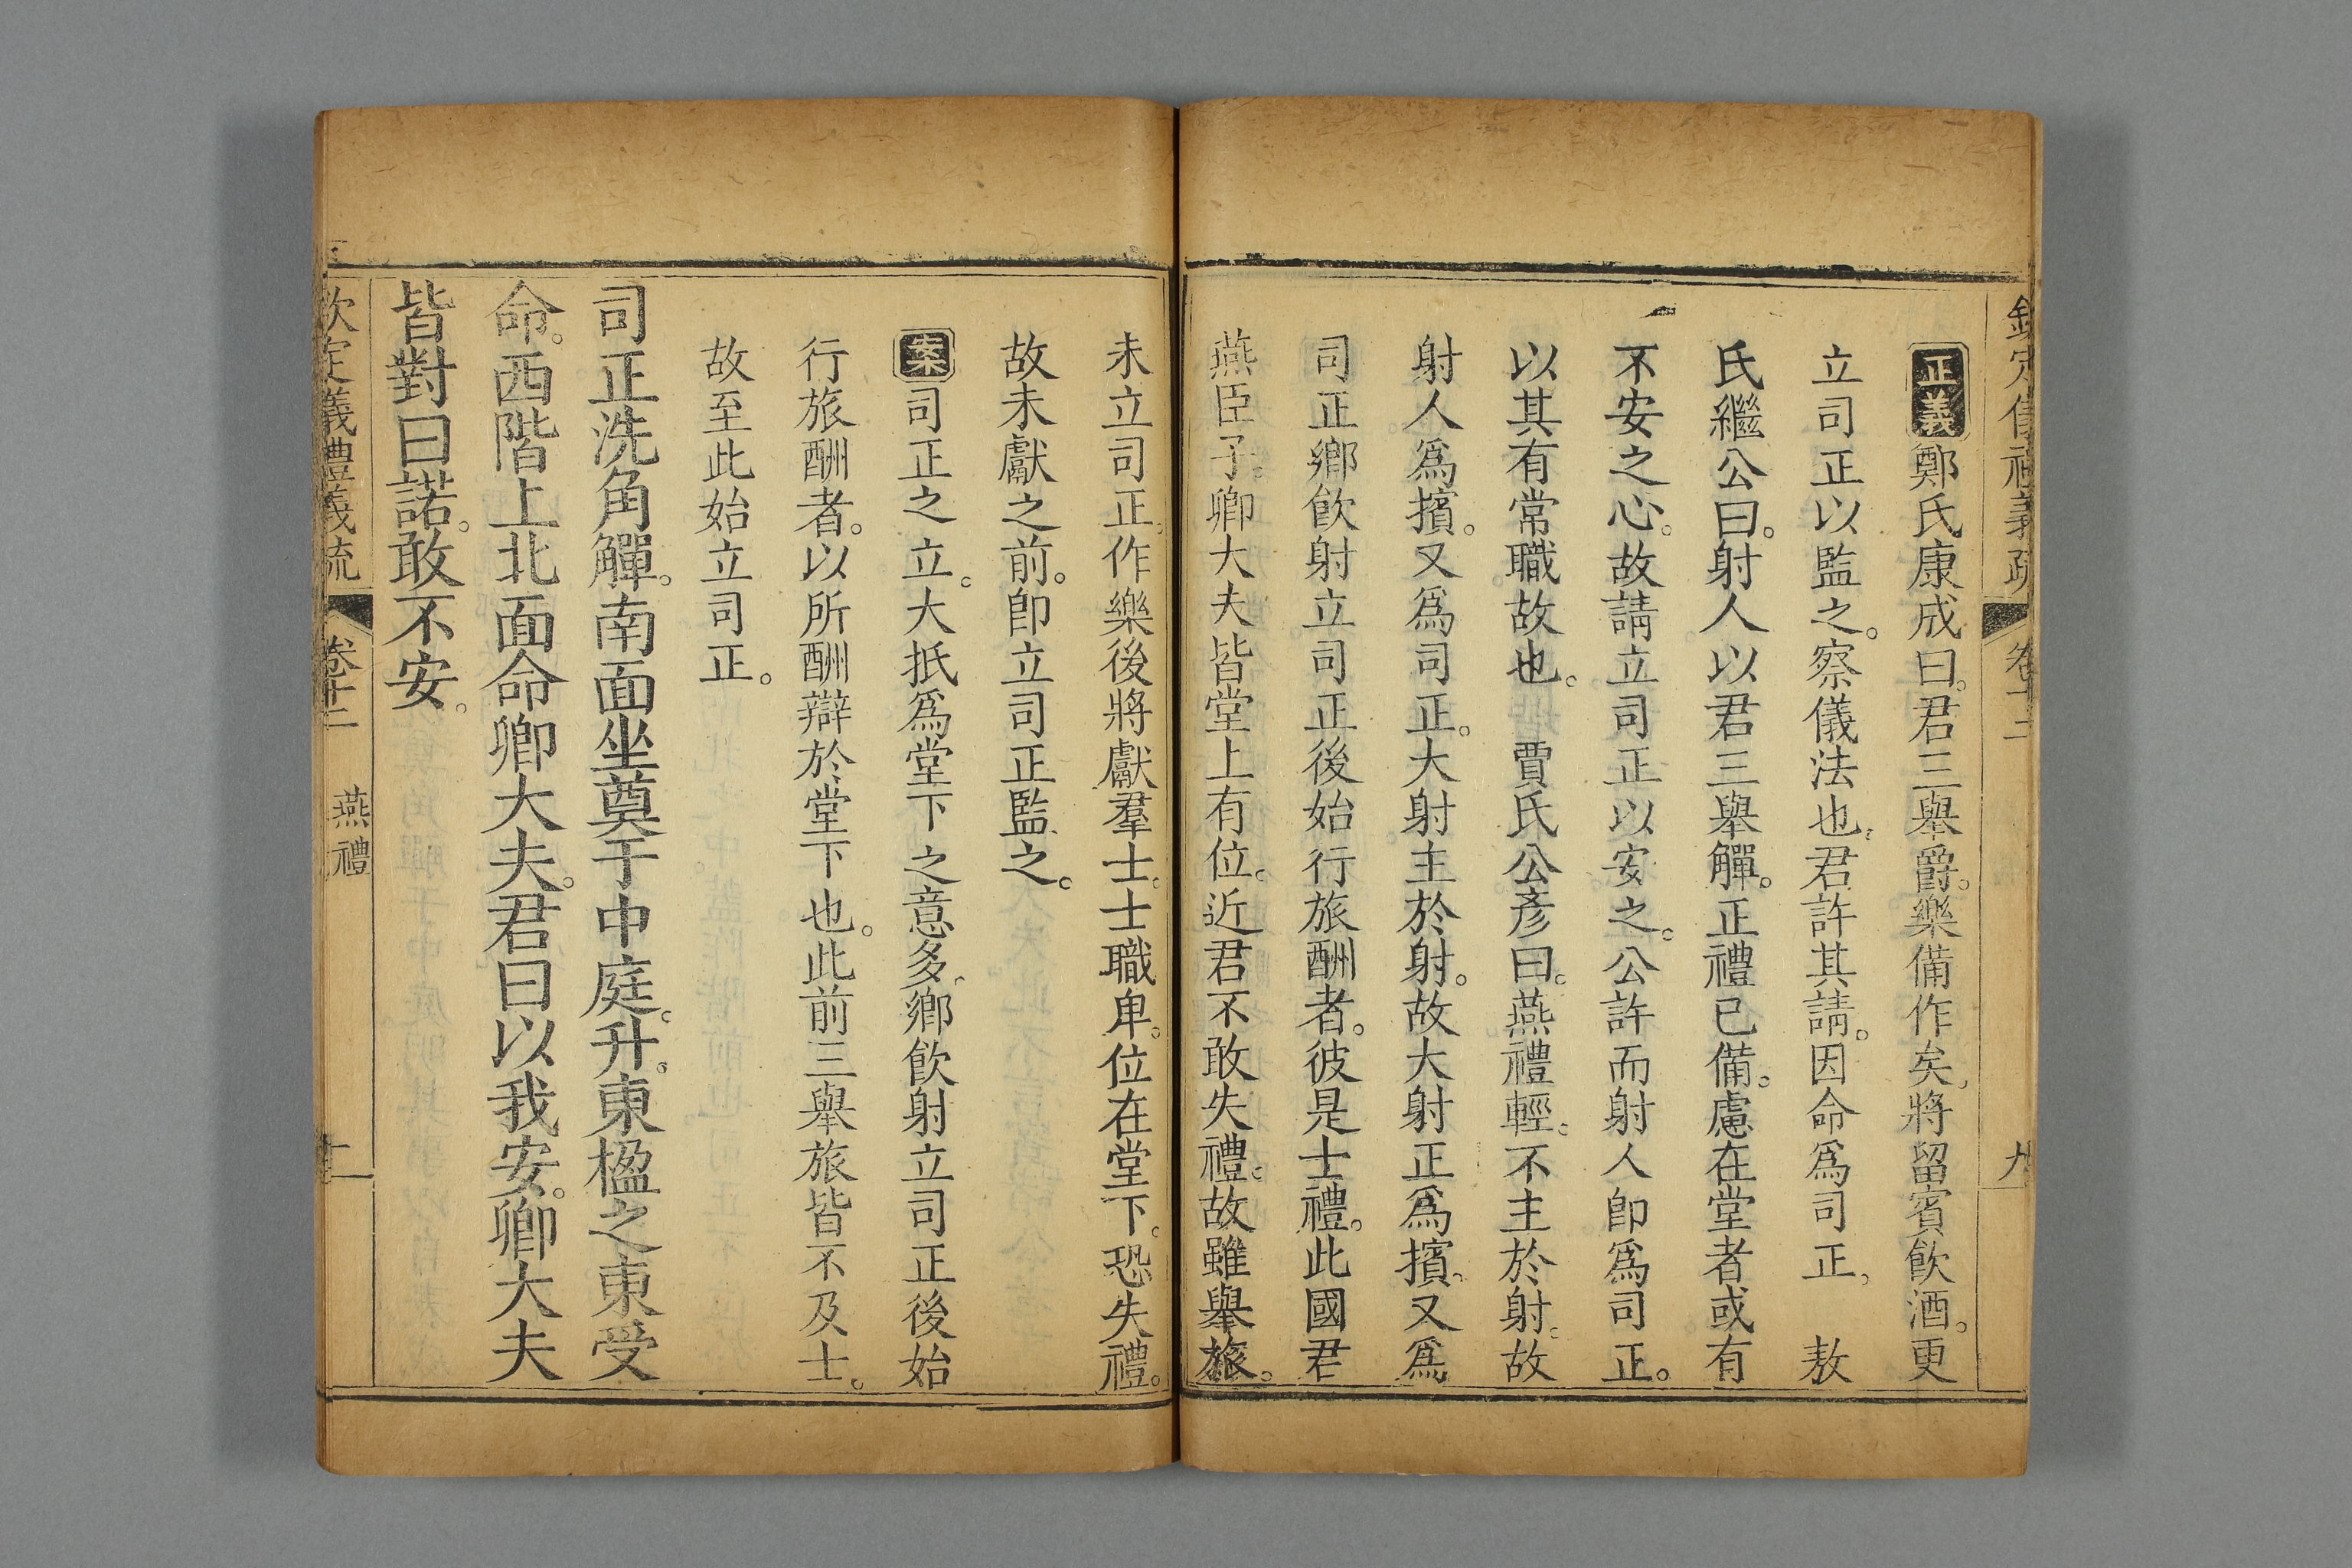 欽定儀禮義疏 卷十二 九
正義鄭氏康成曰。君三舉爵。樂備作矣。將留賓飲酒。更
立司正以監之。察儀法也。君許其請。因命爲司正。 敖
氏繼公曰。射人以君三舉觶。正禮已備。慮在堂者或有
不安之心。故請立司正以安之。公許而射人卽爲司正。
以其有常職故也。 賈氏公彥曰。燕禮輕。不主於射。故
射人爲擯。又爲司正。大射主於射。故大射正爲擯。又爲
司正鄉飲射立司正後始行旅酬者。彼是士禮。此國君
燕臣子。卿大夫皆堂上有位。近君不敢失禮。故雖舉旅。
未立司正。作樂後將獻羣士。士職卑。位在堂下。恐失禮。
故未獻之前。卽立司正監之。
案司正之立。大抵爲堂下之意多。鄉飲射立司正後始
行旅酬者。以所酬辯於堂下也。此前三舉旅皆不及士。
故至此始立司正。
司正洗角觶。南面坐奠于中庭。升。東楹之東受
命。西階上北面命卿大夫。君曰以我安。卿大夫
皆對曰諾。敢不安。
欽定儀禮義疏 卷十二 燕禮